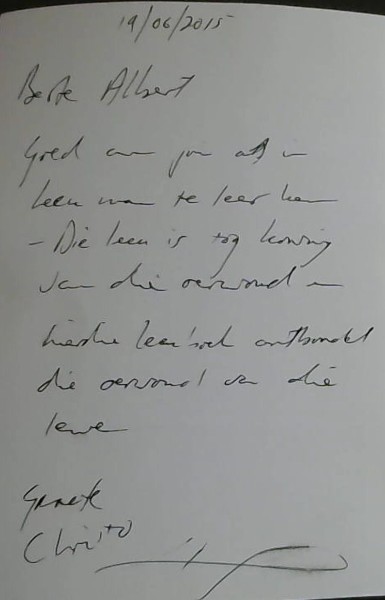 19/06/2015
Beste Albert
Goed om jou as 'n
leeu man te leer ken
- Die leeu is tog koning
van die oerwoud en
hierdie leeu boek
die oerwoud van die
lewe
Groete
Christo